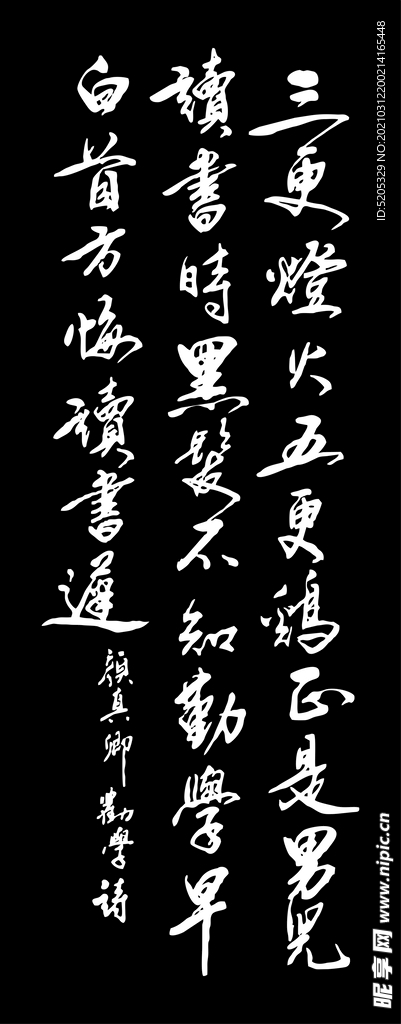 三更燈火五更鷄正是男児
讀書時黑髮不知勤學早
白首方悔讀書遲
顔真卿勸學詩
ID:5205329 NO:20210312200214165448
昵享网 www.nipic.cn